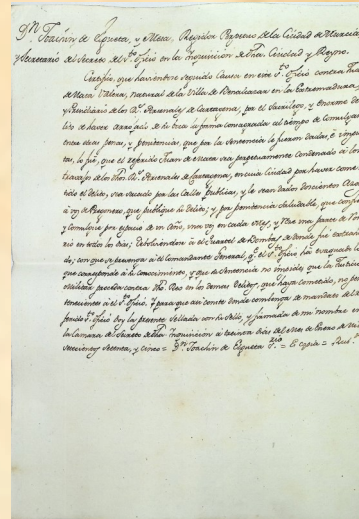 Dn. Joachin de Egueta, y Mesa, Regidor Perpetuo de la Ciudad de Murcia
y Secretario del Secreto del Sto. Oficio en la Inquisicion de dha. Ciudad y Reyno.
Certifico, que haviendose seguido Causa en este Sto. Oficio contra
de Maca Valera, natural de la Villa de Benalcazar en la Extremadura,
y Presidiario de los Rs. Arsenales de Cartagena, por el Sacrilego, y enorme de
lito de haver arrojado de su boca la forma consagrada al tiempo de Comulgar
entre otras penas, y penitencias, que por la Sentencia le fueron dadas, è impu
tas, lo fué, que el referido Juan de fuese perpetuamente Condenado à los
travajos de los dhos. Rs. Arsenales de Cartagena, en cuia Ciudad por haver come
tido el delito, sea sacado por las Calles publicas, y le sean dados doscientos Azo
à voz de Pregonero, que publique su delito; y por penitencia saludable, que confie
y Comulgue por espacio de un Año, una vez en cada Mes, y Reze una parte de
rio en todos los dias; debolviendose à el Quartel de de donde fué extrai
do; con que se prevenga à el Comandante General, q. el Sto. Oficio há
que corresponde à su conocimiento, y que su Sentencia no impide, que la
Militar proceda contra dho. Reo en los demas delitos, que haga cometido, no per
tenecientes à el Sto. Oficio. Y para que asi conste donde combenga de mandato de
ferido Sto. Oficio doy la presente sellada con su Sello, y firmada de mi nombre en
la Camara del Secreto de dha. Inquisicion à treinta dias del Mes de Enero de mil
setecientos setenta, y cinco = Dn. Joachin de Egueta = Es copia =